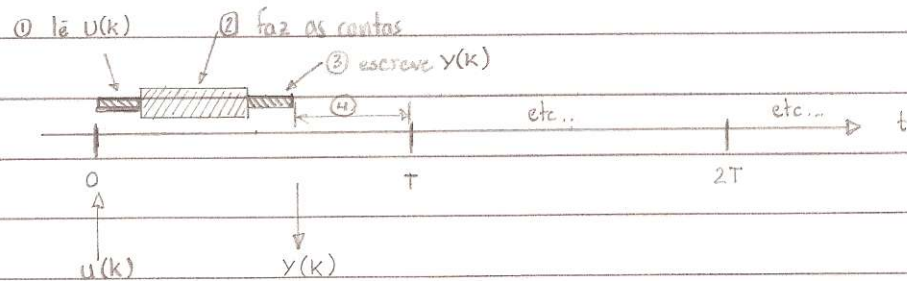 ① lê U(k) ② faz as contas
③ escreve y(k)
④ etc.. etc... t
0 T 2T
u(k) y(k)